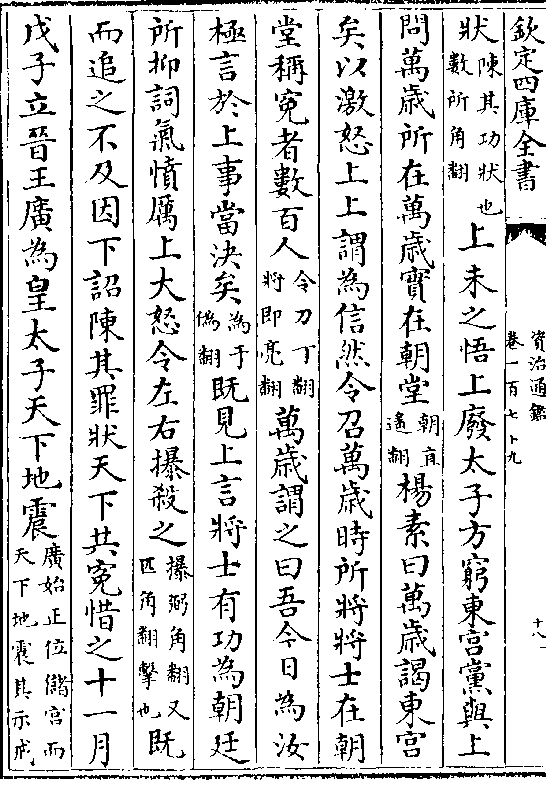 欽定四庫全書
資治通鑑
卷一百七十九
十八
狀陳其功狀也數所角翻上未之悟上廢太子方窮東宮黨與上
問萬歲所在萬歲實在朝堂朝直遙翻楊素曰萬歲謁東宮
矣以激怒上上謂為信然令召萬歲時所將將士在朝
堂稱寃者數百人令力丁翻將即亮翻萬歲謂之曰吾今日為汝
極言於上事當決矣為于偽翻既見上言將士有功為朝廷
所抑詞氣憤厲上大怒令左右㩧殺之㩧弼角翻又匹角翻擊也既
而追之不及因下詔陳其罪狀天下共寃惜之十一月
戊子立晉王廣為皇太子天下地震廣始正位儲宮而天下地震其示戒